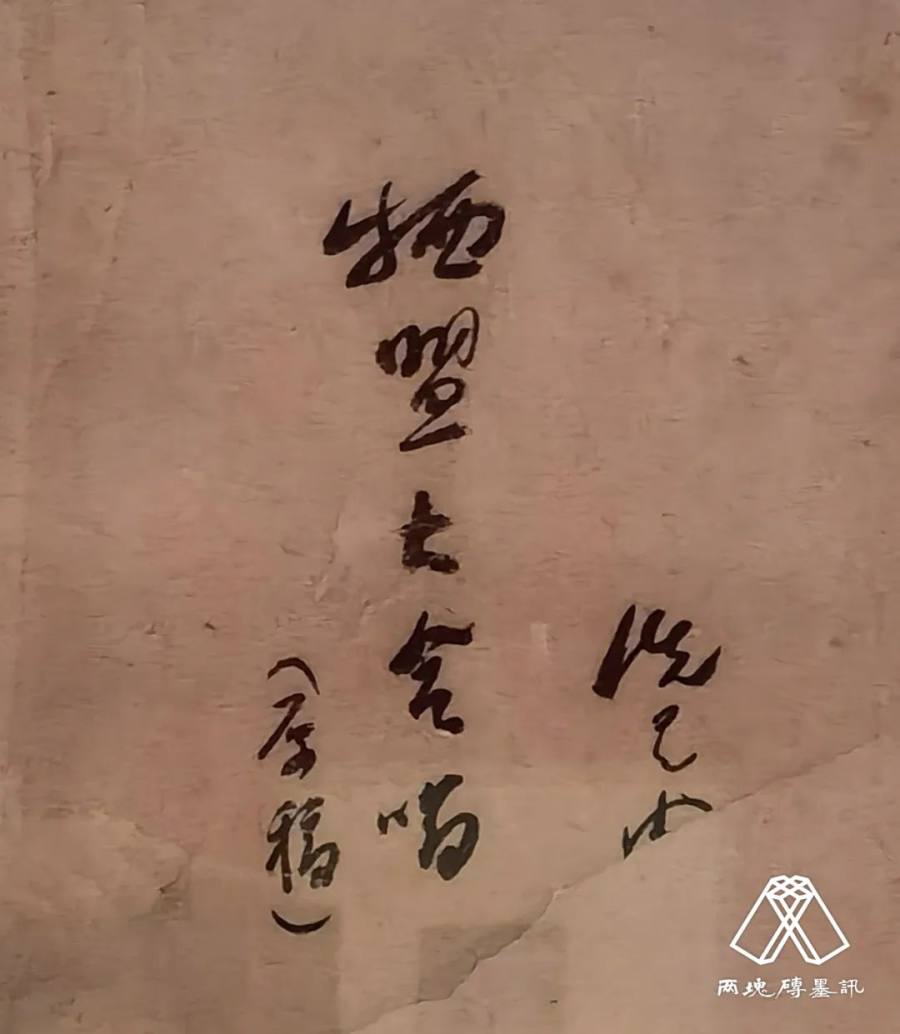 冼星海
牺盟大合唱
（原稿）
两塊磚墨訊